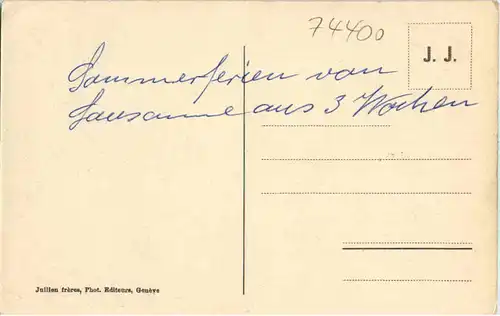 74400
J. J.
Sommerferien von
Lausanne aus 3 Wochen
Jullien frères, Phot. Editeurs, Genève